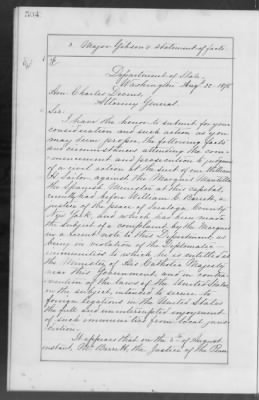 504.
3. Major Gibson's statement of facts.
Department of State,
Washington Augt 22. 1876
Hon. Charles Devens,
Attorney General.
Sir:
I have the honor to submit for your
consideration and such action as you
may deem proper, the following facts
and circumstances attending the com-
mencement and prosecution to judgment
of a civil action at the suit of one William
H. Saxton, against the Marquis Mantilla
the Spanish Minister at this capital,
recently had before William C. Barrett, a
justice of the peace of Saratoga County
New York, and which has been made
the subject of a complaint by the Marquis
in a recent note to this Department as
being in violation of the Diplomatic
immunities to which he is entitled as
the Minister of His Catholic Majesty
near this Government, and in contra-
vention of the laws of the United States
on the subject, intended to secure to
foreign legations in the United States
the full and uninterrupted enjoyment
of such immunities from local juris-
diction.
It appears that on the of August
instant, Mr. Barrett, the Justice of the Peace